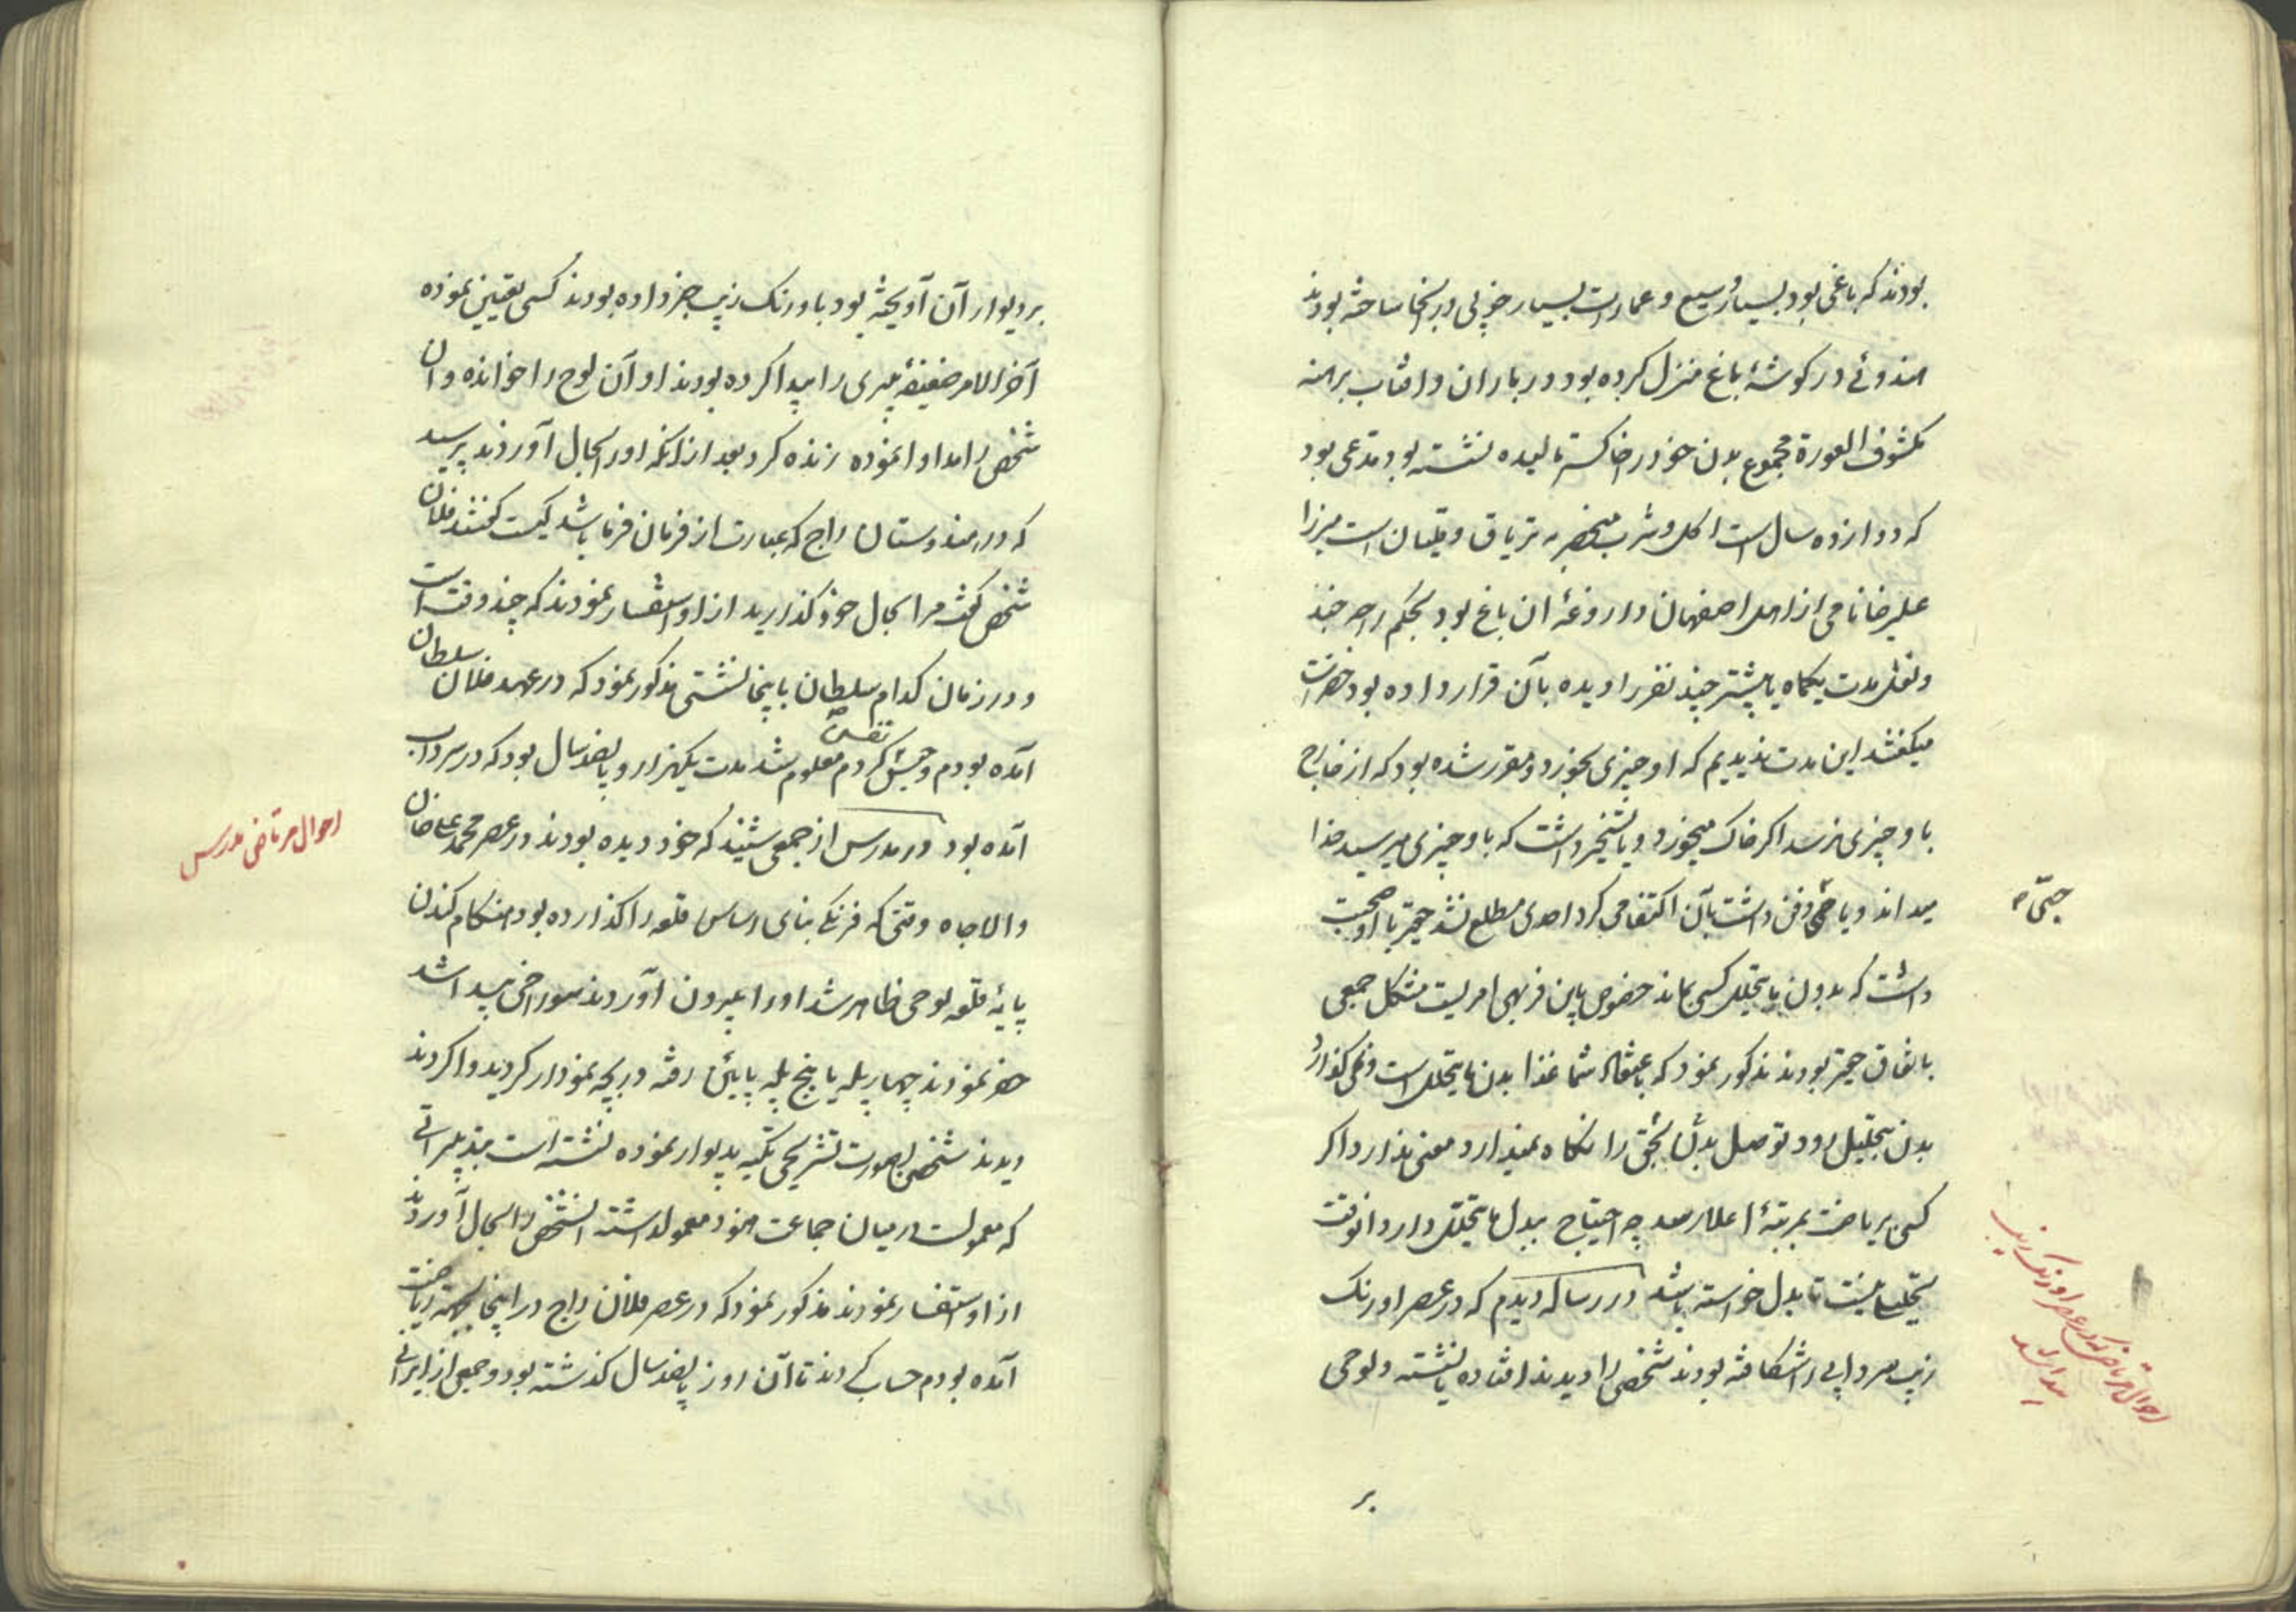 بودند که باغی بود بسیار وسیع و عمارت بسیار خوبی در انجا ساخته بودند
هندوئے در کوشهٔ باغ منزل کرده بود در باران و افتاب برهنه
مکشوف العورة مجموع بدن خود را خاکستر مالیده نشسته بود مدعی بود
که دوازده سال است اکل و شرب منحصر به تریاق و قلیان است میرزا
علیرضا نامی از اهل اصفهان داروغهٔ ان باغ بود بحکم راجه چند
مدت یکماه یا بیشتر چند نفر را دیده بآن قرار داده بود حضرات
میکفتند این مدت ندیدیم که او چیزی بخورد و مقرر شده بود که از خارج
باو چیزی نرسد اکر خاک میخورد و یا تسخیر داشت که باو چیزی میرسید خدا
میداند و یا دفن داشت بآن اکتفا می کرد احدی مطلع نشد حقیر با او صحبت
داشت که بدون ما یتحلل کسی بماند خصوص باین فربهی امریست مشکل جمعی
باتفاق حقیر بودند مذکور نمود که باعتقاد شما غذا بدل ما یتحلل است و نمی کذارد
بدن بتحلیل رود توصل بدل یتحقق را نکاه نمیدارد معنی ندارد اکر
کسی بریاضت بمرتبهٔ اعلا رسد چه احتیاج ببدل ما یتحلل دارد انوقت
یتحلل نیست تا بدل خواسته باشد در رساله دیدم که در عصر اورنک
زیب سردابی را شکافته بودند شخصی را دیدند افتاده یا نشسته و لوحی
بر
احوال مرتاض که در عصر اورنک زیب
پیدا شد
بر دیوار آن آویخته بود باورنک زیب خبر داده بودند کسی تعیین نموده
آخر الامر ضعیفهٔ پیری را پیدا کرده بودند او آن لوح را خوانده و ان
شخص را مداوا نموده زنده کرد بعد از انکه او را بحال آوردند پرسید
که در هندوستان راج که عبارت از فرمان فرما باشد کیست کفتند فلان
شخص کفت مرا بحال خود کذارید از او استفسار نمودند که چند وقت است
و در زمان کدام سلطان باینجا نشستی مذکور نمود که در عهد فلان سلطان
آمده بودم کردم معلوم شد مدت یکهزار و پانصد سال بود که در سرداب
آمده بود در مدرس از جمعی شنیدند که خود دیده بودند در عصر محمد علی خان
والاجاه وقتی که فرنکی بنای اساس قلعه را کذارده بود هنکام کندن
پایهٔ قلعه لوحی ظاهر شد او را بیرون آوردند سوراخی پیدا شد
حفر نمودند چهار پله یا پنج پله پایین رفته دریچه نمودار کردید وا کردند
دیدند شخصی بصورت تشریحی تکیه بدیوار نموده نشسته است بتدبیراتی
که معمولست در میان جماعت هنود معمول داشته انشخص را بحال آوردند
از او استفسار نمودند مذکور نمود که در عصر فلان راج در اینجا بجهت ریاضت
آمده بودم حساب کردند تا آن روز پانصد سال کذشته بود و جمعی از ایرانی
احوال مرتاض مدرس